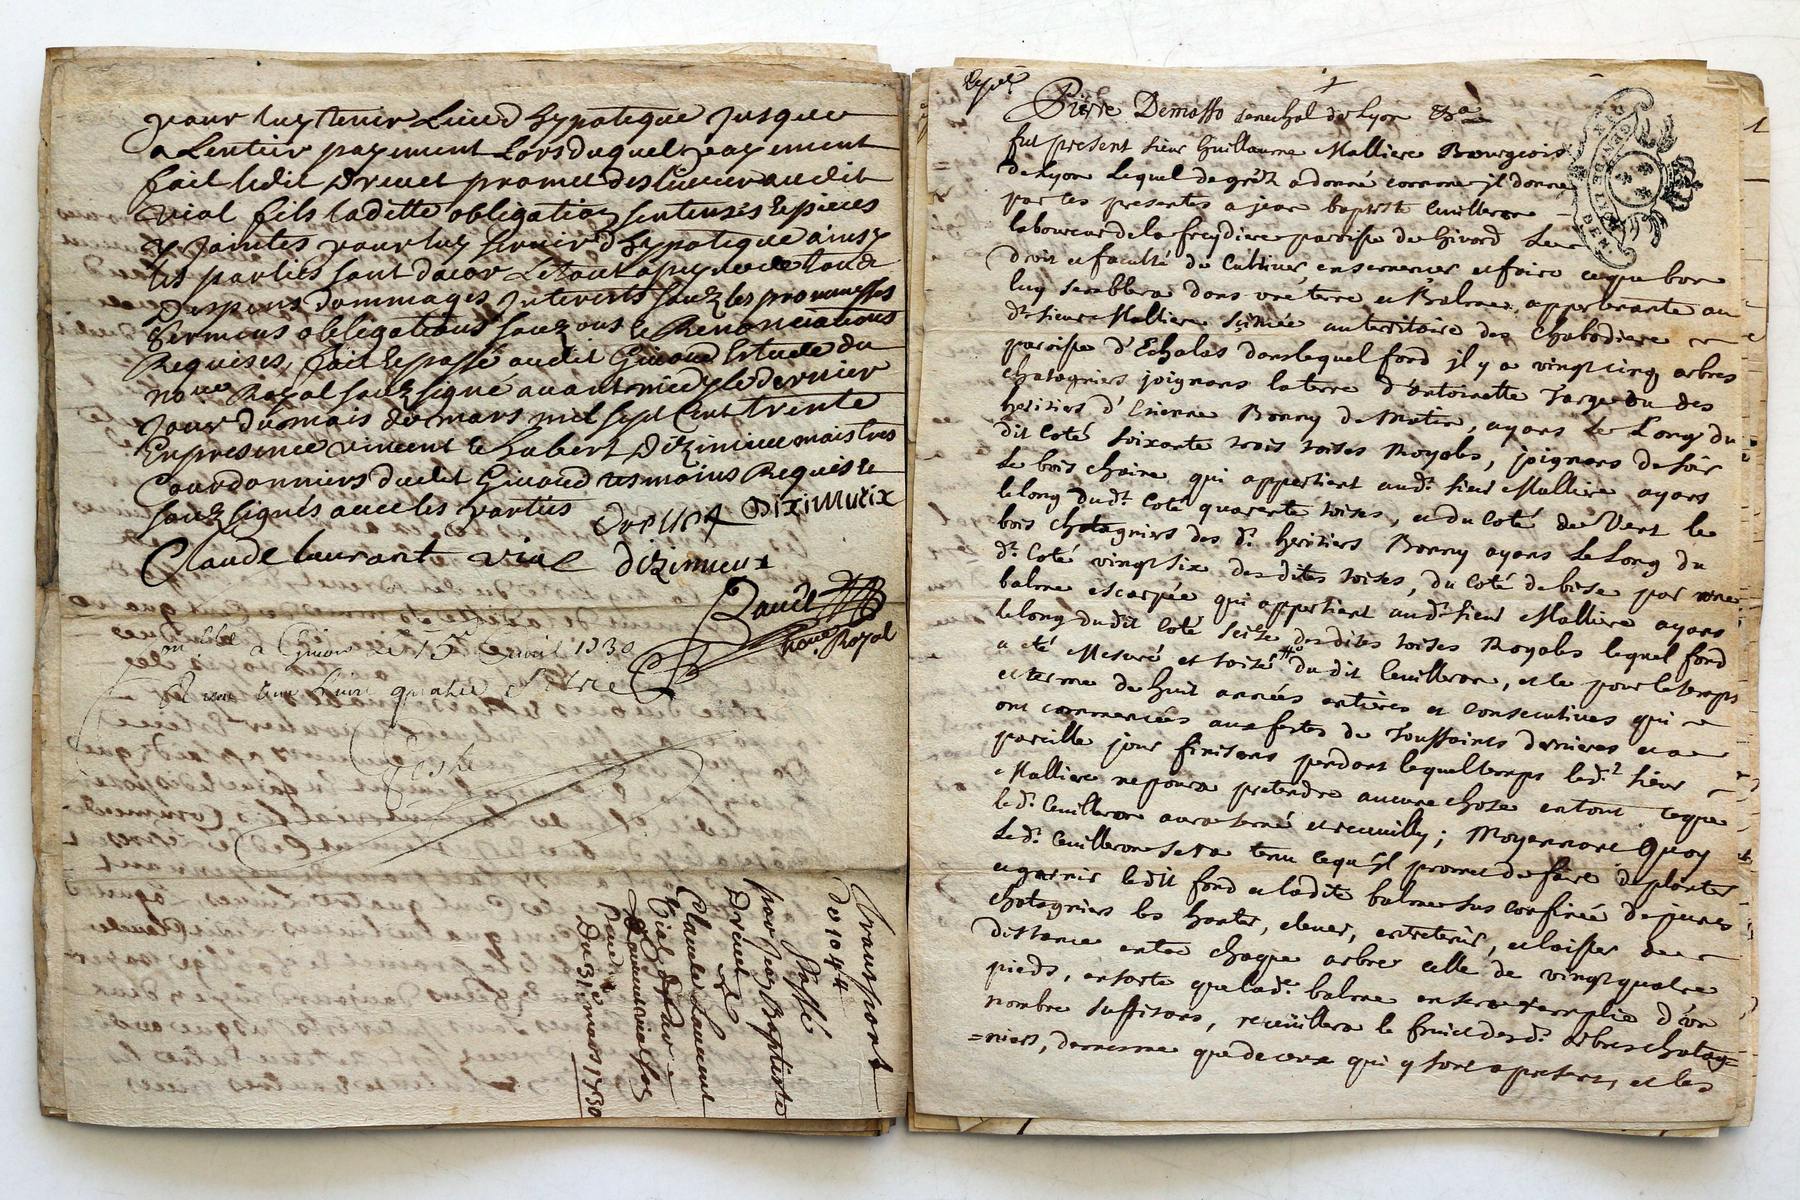 pour luy tenir Lieu d'hypoteque Jusques
a Lentier payement Lors duquel payement
fait ledit Drevet promet deslivrer audit
vial fils ladette obligation sentenses & pieces
y Jointes pour luy servir d'hypoteque ainsy
les parties sont dacor Le tout a peyne de tous
Despens Dommages Interests souz les promesses
sermens obligations souz ous & Renonciations
Requises, fait & passé audit Givord Estude du
no.re Royal souzsigné avant midy le dernier
Jour du mois de mars mil sept Cent trente
En presence vincent & hubert Dizimieu maistres
Courdonniers dudit Givord tesmoins Requis &
souz signés avec les parties
Drevet DiziMieix
Claude laurant vial dizimieux
no.re Royal
a Givors le 15e avril 1730
Transport
de 104 ₶
Passé
par Jean Baptiste
Drevet a
Claude Laurent
Vial
Du 31e mars 1730
Pierre Demasso senechal de Lyon
fut present sieur Guillaume Malliere Bourgeois
de Lyon Lequel de gré a donné comme jl donne
par ces presentes a jean baptiste Cuilleron
laboureur de la freydiere paroisse de Givord Le
droit et faculté de Cultiver ensemencer et faire ce que bon
luy semblera dans une terre et Balme, appartenante au
dt sieur Malliere scituée au territoire des Chabodiere
paroisse d'Echalas dans lequel fond jl y a vingt cinq arbres
chatagniers joignans la terre d'antoinette Targe du des
heritiers d'Etienne Bonny de Matin, ayans de Long du
dit Coté soixante trois toises Royales, joignans de soir
Le bois chaine qui appartient aud.t sieur Malliere ayans
lelong dud.t Coté quarante toises, et du Coté de Vent le
bois chatagniers des d.t heritiers Bonny ayans Le Long du
d.t Coté vingt six desdites toises, du Coté de bise par une
balme escarpée qui appartient aud.t sieur Malliere ayans
lelong dudit Coté seize desdites toises Royales lequel fond
a eté Mesuré et toisé du dit Cuilleron, et ce pour le temps
et terme de huit années entieres et Consecutives qui
ont commencées aux festes de Toussaints dernieres et a
pareille jour finisans pendant lequel temps led.t sieur
Malliere ne poura pretendre aucune chose en tout ceque
le d.t Cuilleron aura semé et receuilly; Moyennant Quoy
Le d.t Cuilleron sera tenu Ce qu'jl promet de faire de planter
et garnir ledit fond et ladite balme sus confinée de jeunes
chatagniers les hanter, elever, entretenir, et laisser de
distance entre chaque arbre celle de vingt quatre
pieds, ensorte que lad.t balme en sera remplie d'un
nombre suffisans, receuillera le fruit desd.t arbres chatag=
=niers, de mesme que de ceux qui y sont a present, et les